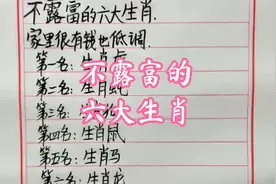 不露富的六大生肖.
家里很有钱也低调.
第一名:生肖虎
第二名:生肖蛇
第三名:
第四名:生肖鼠
第五名:生肖马
第六名:生肖龙
不露富的
六大生肖